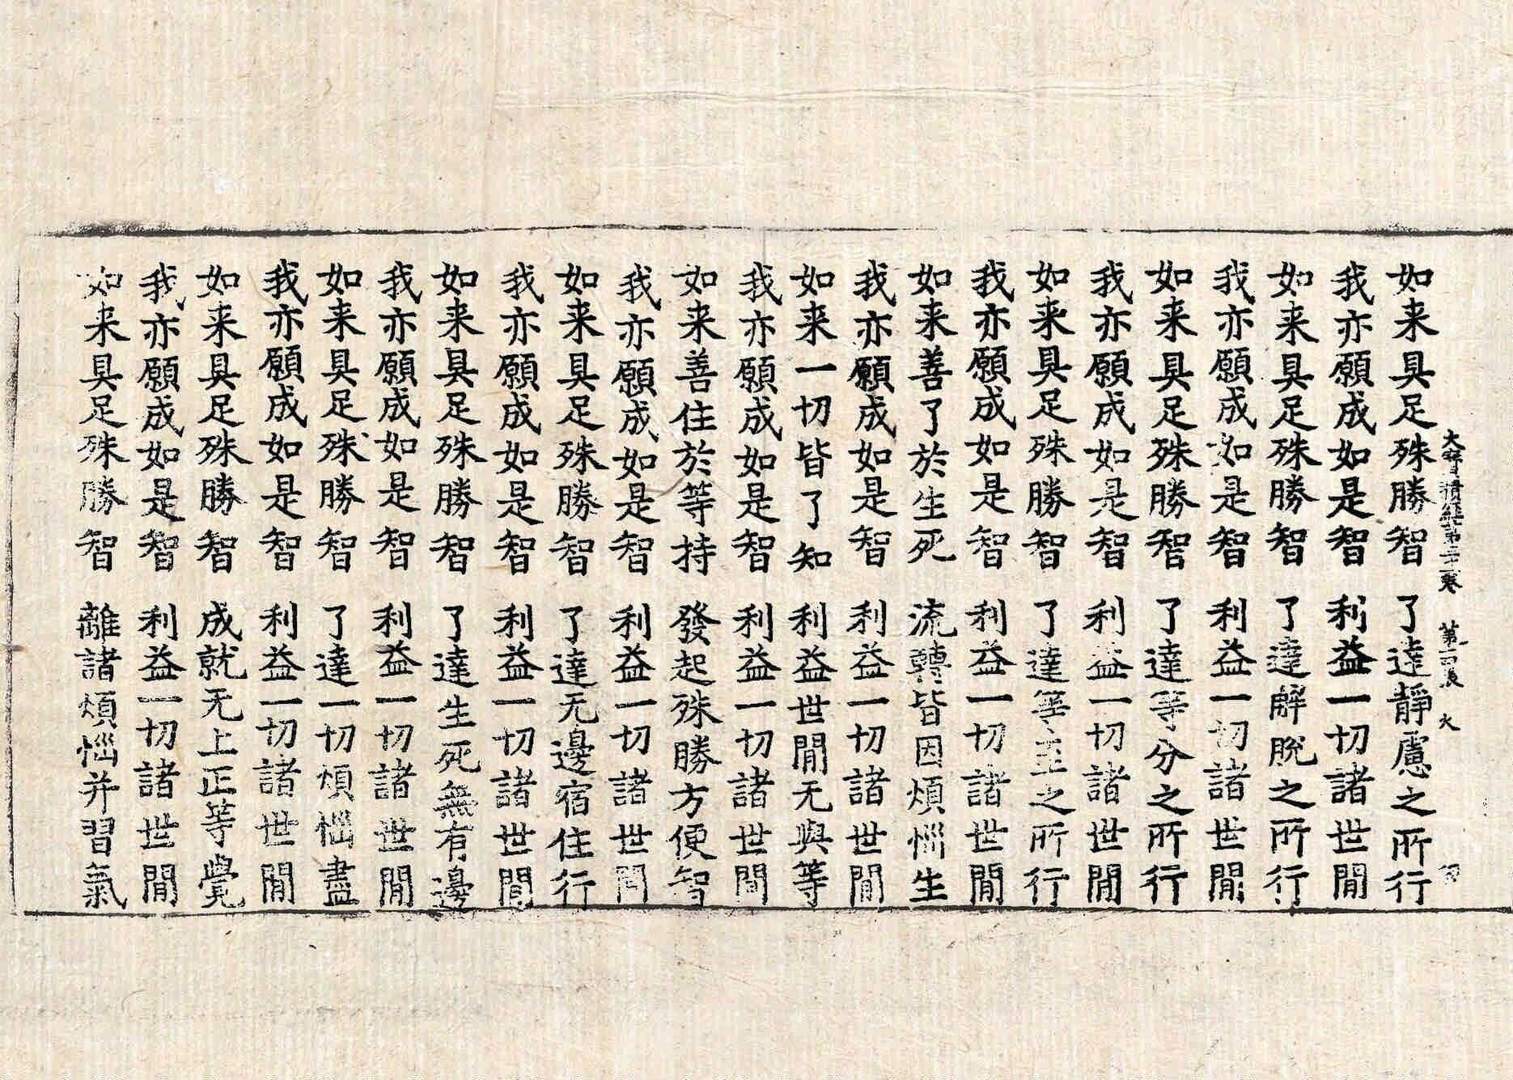 如来具足殊勝智　了達靜慮之所行
大寶積經第三十二卷　第十四張　火
我亦願成如是智　利益一切諸世閒
如来具足殊勝智　了達解脫之所行
我亦願成如是智　利益一切諸世閒
如来具足殊勝智　了達等分之所行
我亦願成如是智　利益一切諸世閒
如来具足殊勝智　了達等至之所行
我亦願成如是智　利益一切諸世閒
如来善了於生死　流轉皆因煩惱生
我亦願成如是智　利益一切諸世閒
如来一切皆了知　利益世閒无與等
我亦願成如是智　利益一切諸世閒
如来善住於等持　發起殊勝方便智
我亦願成如是智　利益一切諸世閒
如来具足殊勝智　了達无邊宿住行
我亦願成如是智　利益一切諸世閒
如来具足殊勝智　了達生死無有邊
我亦願成如是智　利益一切諸世閒
如来具足殊勝智　了達一切煩惱盡
我亦願成如是智　利益一切諸世閒
如来具足殊勝智　成就无上正等覺
我亦願成如是智　利益一切諸世閒
如来具足殊勝智　離諸煩惱并習氣